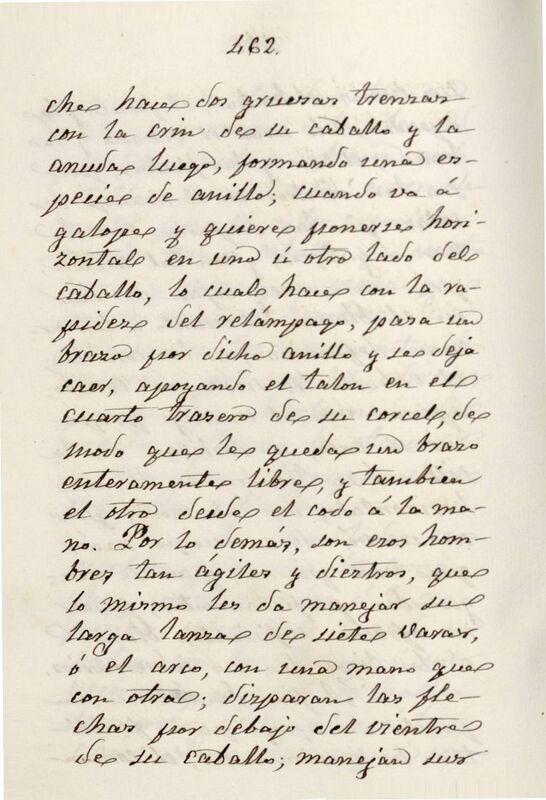 462.
che hace dos gruesas trenzas
con la crin de su caballo y la
anuda luego, formando una es-
pecie de anillo; cuándo va á
galope y quiere ponerse hori-
zontal en uno ú otro lado del
caballo, lo cual hace con la ra-
pidez del relámpago, pasa un
brazo por dicho anillo y se deja
caer, apoyando el talon en el
cuarto trasero de su corcel, de
modo que le queda un brazo
enteramente libre, y tambien
el otro desde el codo á la ma-
no. Por lo demás, son esos hom-
bres tan ágiles y diestros, que
lo mismo les da manejar su
larga lanza de siete varas,
ó el arco, con una mano que
con otra; disparan las fle-
chas por debajo del vientre
de su caballo; manejan sus